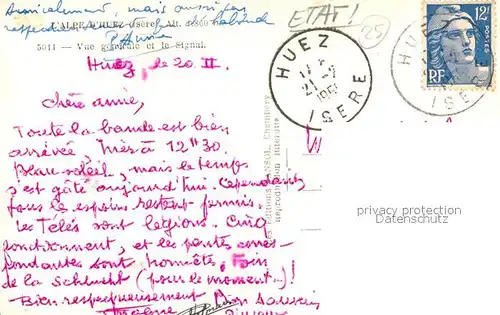 Amicalement, mais aussi pas
respectueusement
L'ALPE D'HUEZ (Isère) Alt. 1860
5011 - Vue générale et le Signal.
ETAT!
25
HUEZ
21 -2
ISERE
HUEZ
ISERE
12F
RF
Huez, le 20 II.
Chère amie,
Toute la bande est bien
arrivée à 12H30.
Beau soleil, mais le temps
s'est gâté aujourd'hui. Cependant
tous les espoirs restent permis.
Les Télés sont légions. Cinq
fonctionnent, et les pentes corres-
pondantes sont honnêtes. Loin
de la Schlucht (pour le moment...)!
Bien respectueusement
Reproduction interdite
privacy protection
Datenschutz